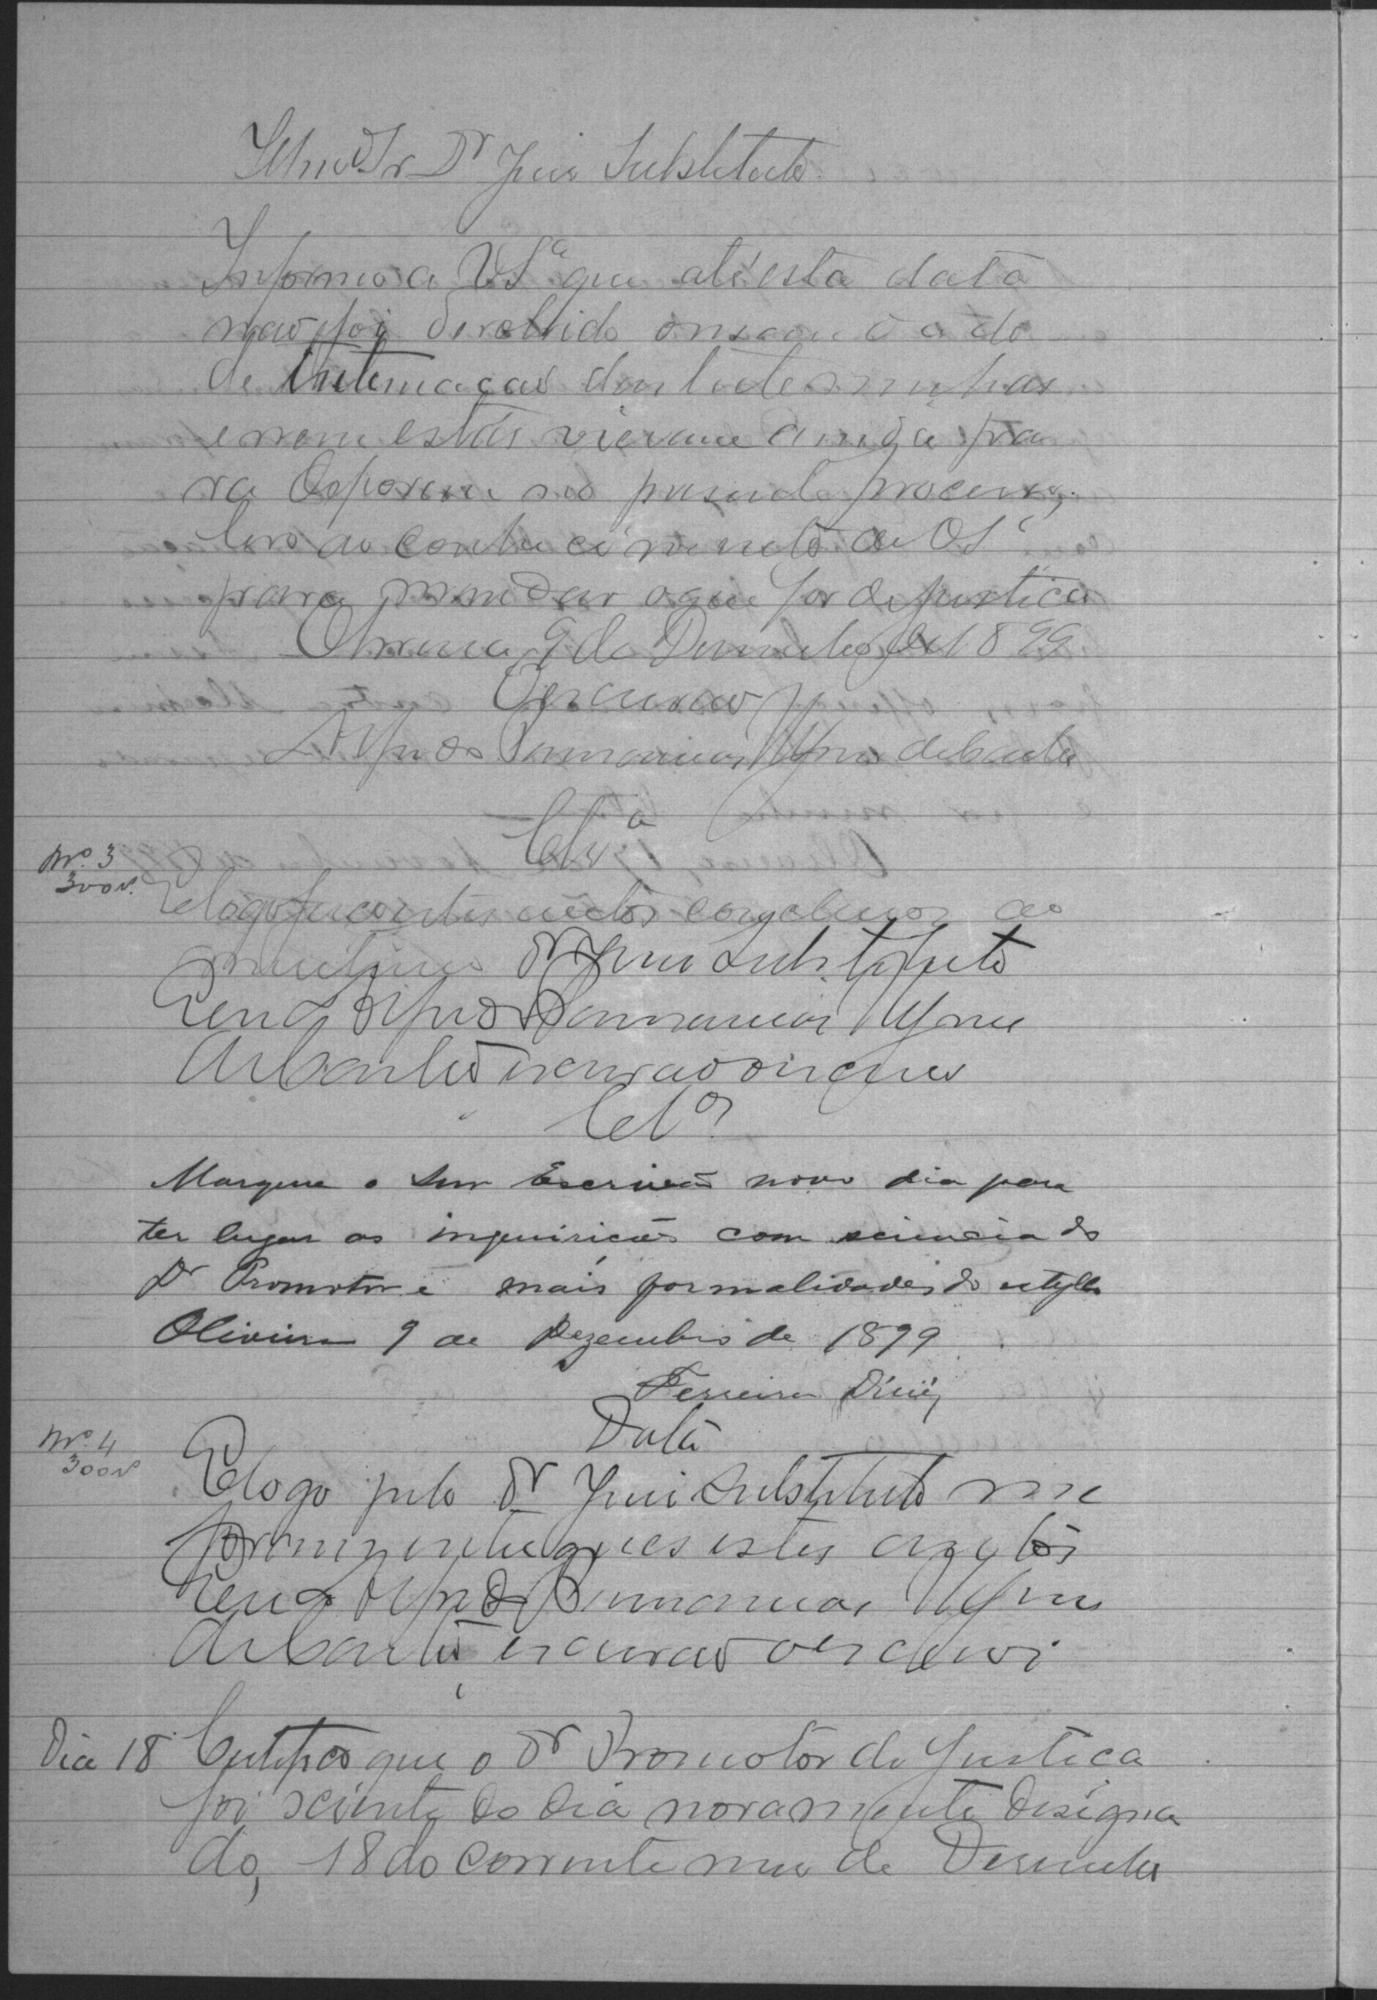 Illmo Sr. Dr Juiz Substituto
Informo a VSa que até esta data
não foi devolvido o mandado
de intimação das testemunhas
e nem estas vieram a
ra deporem no presente processo,
levo ao conhecimento de VSa
para mandar o que for de justiça
Oliveira 9 de Dezembro de 1899
O escrivão
Clsa
No. 3
300rs.
E logo faço estes autos conclusos ao
Dr Juiz Substituto
Eu
escrivão o escrevi
Clos
Marque o Snr Escrivão novo dia para
ter lugar as inquirições com sciencia do
Dr Promotor e mais formalidades do estyllo
Oliveira 9 de Dezembro de 1899
Ferreira Diniz
Data
No. 4
300rs
E logo pelo Dr Juiz Substituto me
foram entregues estes autos
Eu
escrivão o escrevi
Dia 18 Certifico que o Dr Promotor de Justiça
foi sciente do dia novamente designa
do, 18 do corrente mez de Dezembro